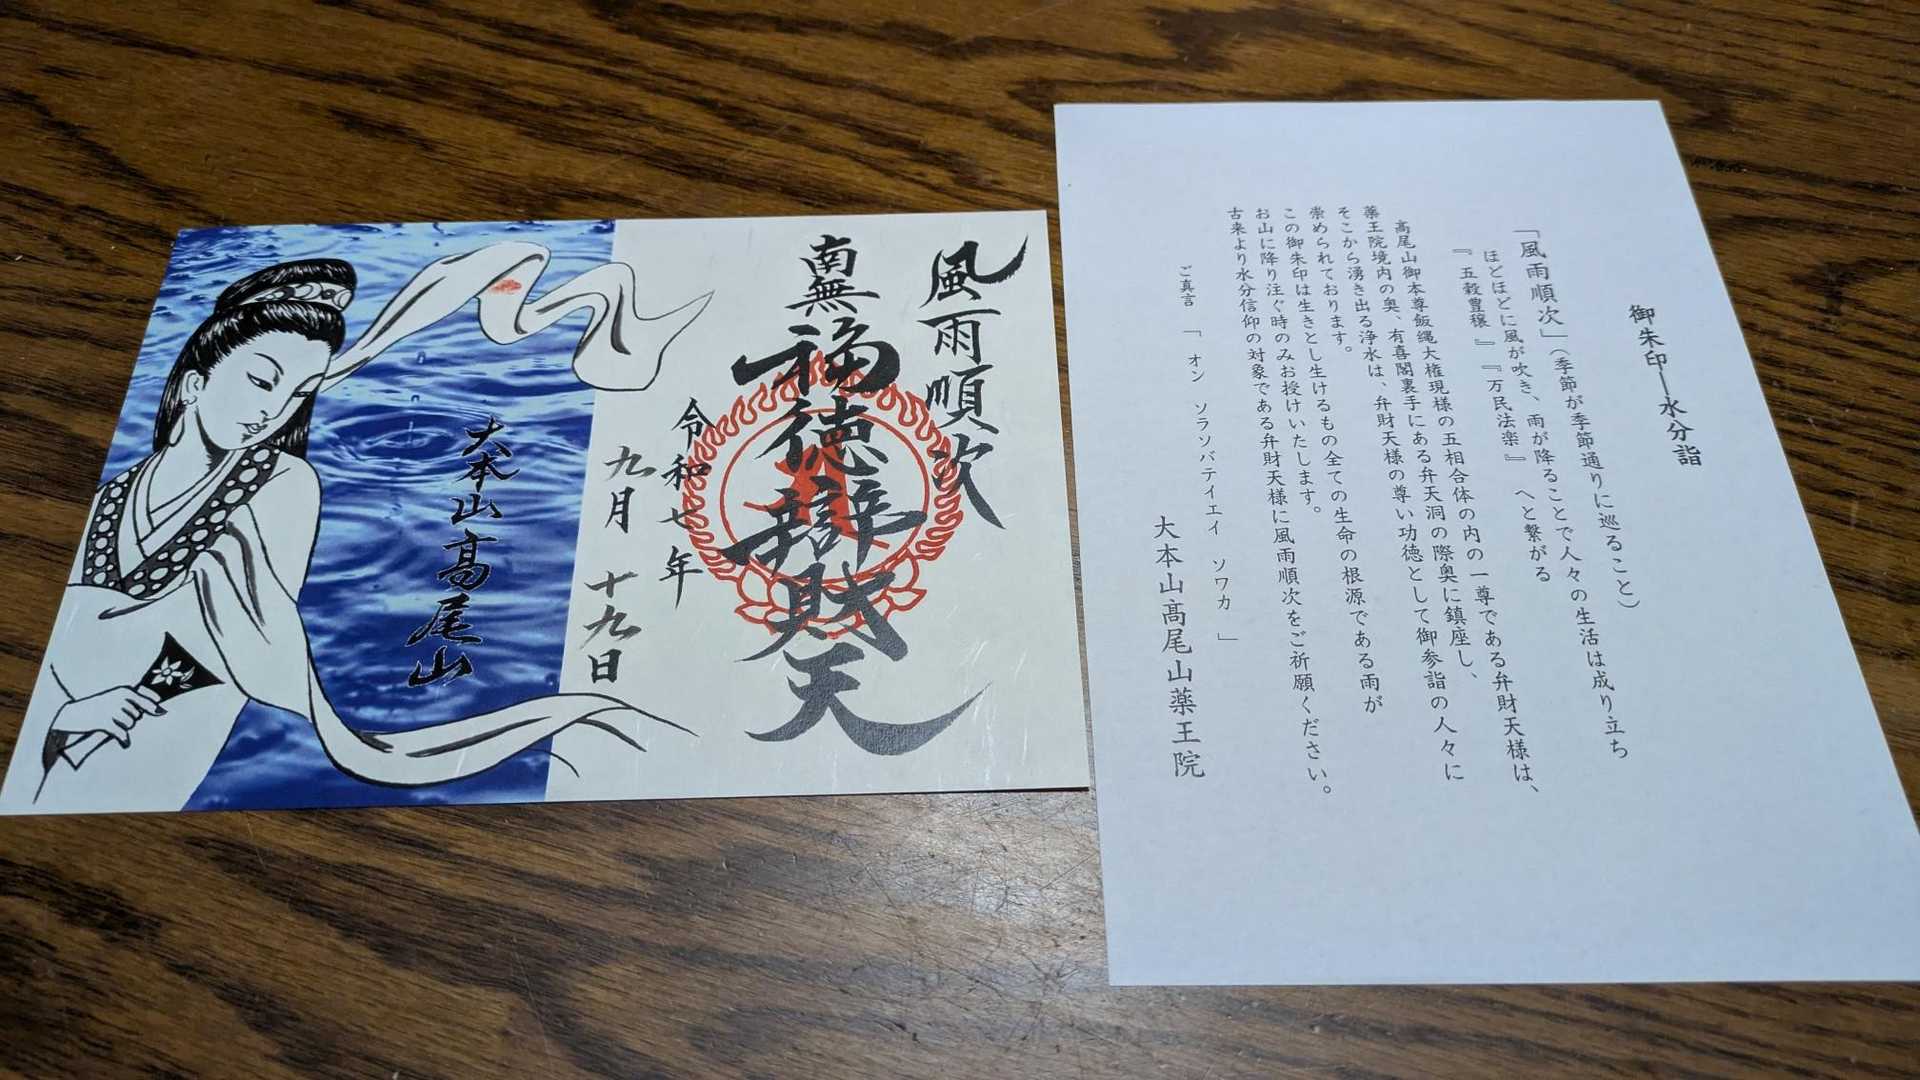 風雨順次
南無福徳辯財天
令和七年
九月十九日
大本山高尾山
御朱印―水分詣
「風雨順次」(季節が季節通りに巡ること)
ほどほどに風が吹き、雨が降ることで人々の生活は成り立ち
『五穀豊穣』『万民法楽』へと繋がる
高尾山御本尊飯縄大権現様の五相合体の内の一尊である弁財天様は、
薬王院境内の奥、有喜閣裏手にある弁天洞の際奥に鎮座し、
そこから湧き出る浄水は、弁財天様の尊い功徳として御参詣の人々に
崇められております。
この御朱印は生きとし生けるもの全ての生命の根源である雨が
お山に降り注ぐ時のみお授けいたします。
古来より水分信仰の対象である弁財天様に風雨順次をご祈願ください。
ご真言 「オン ソラソバテイエイ ソワカ」
大本山髙尾山薬王院